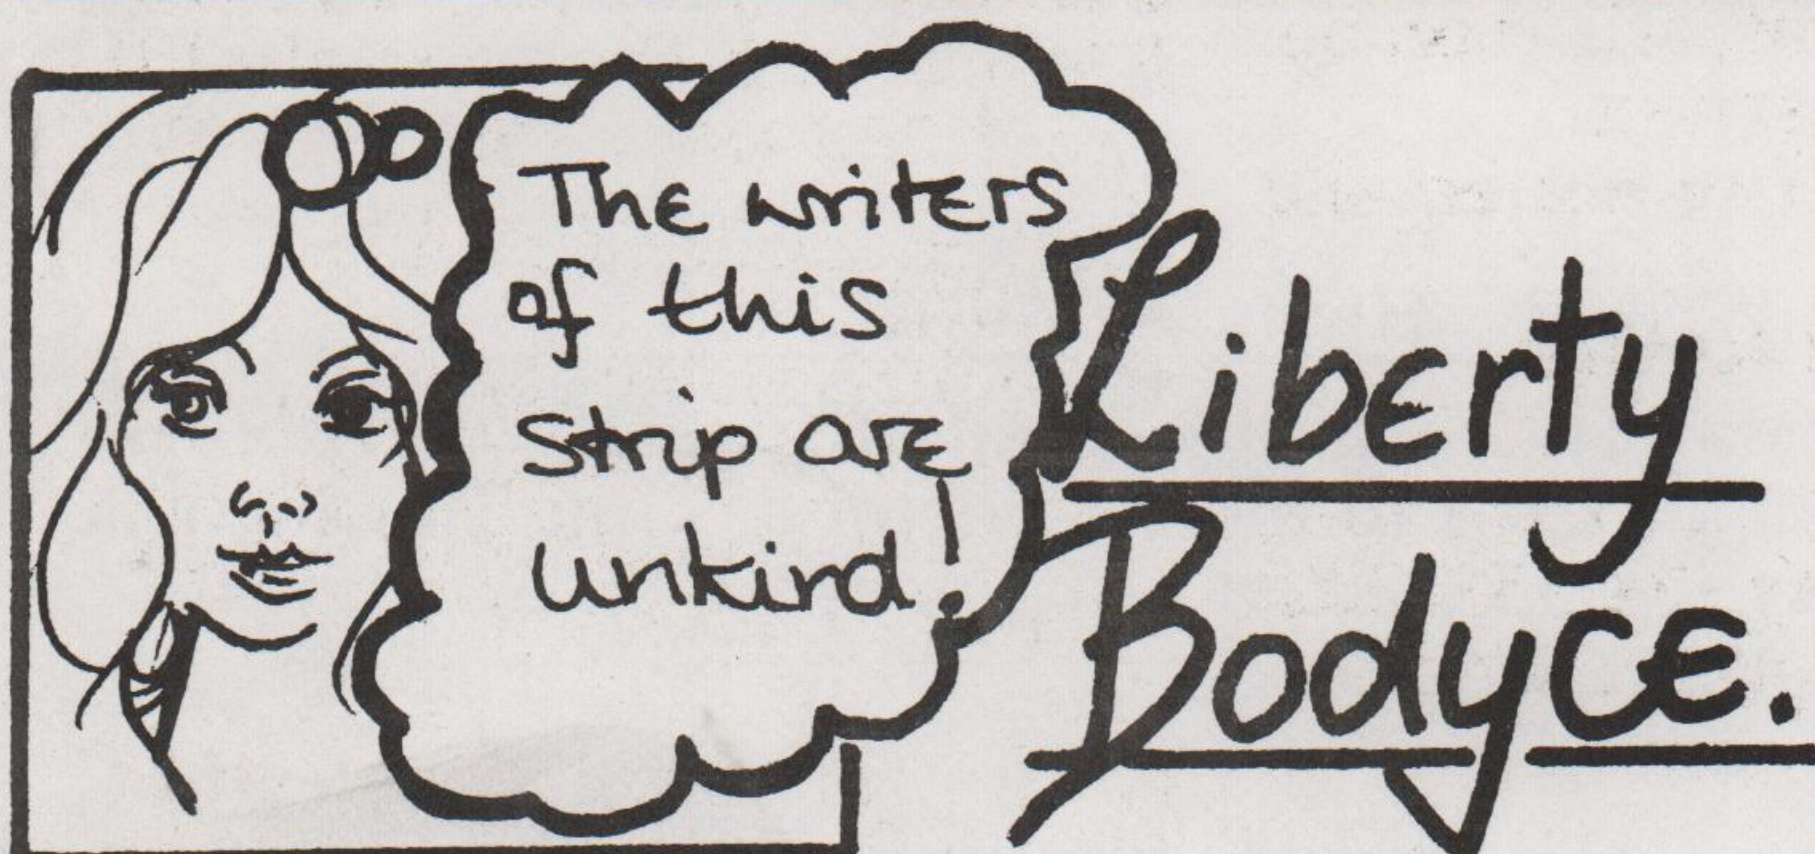 The writers
of this
strip are
unkind!
Liberty
Bodyce.